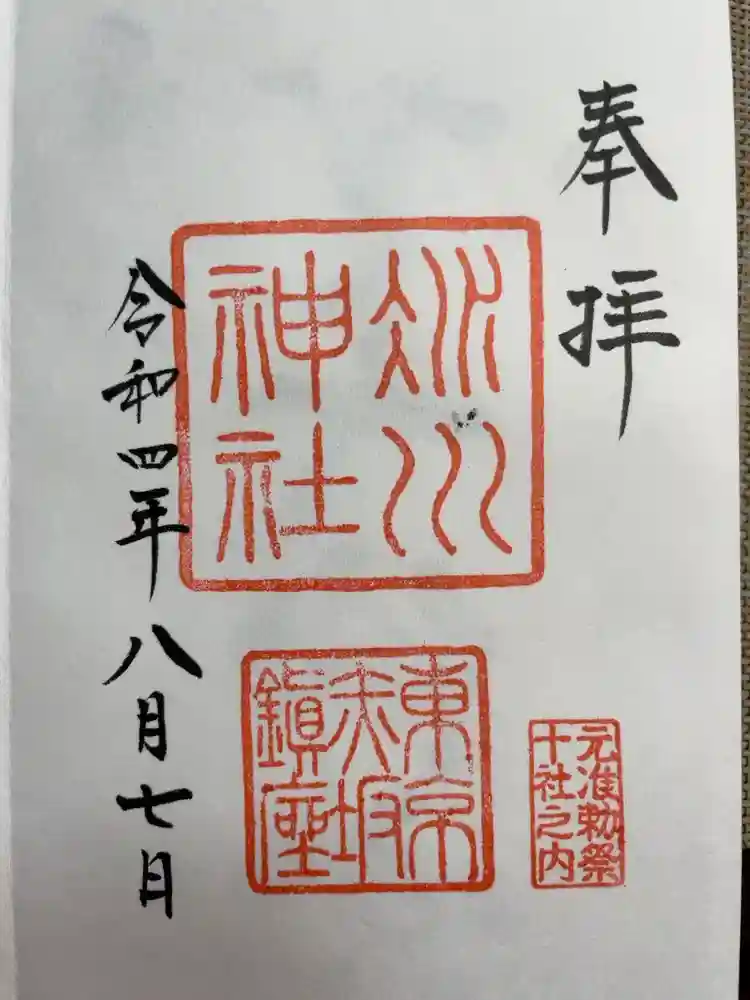 奉拝
氷川
神社
東京
赤坂
鎮座
元准勅祭
十社之内
令和四年八月七日